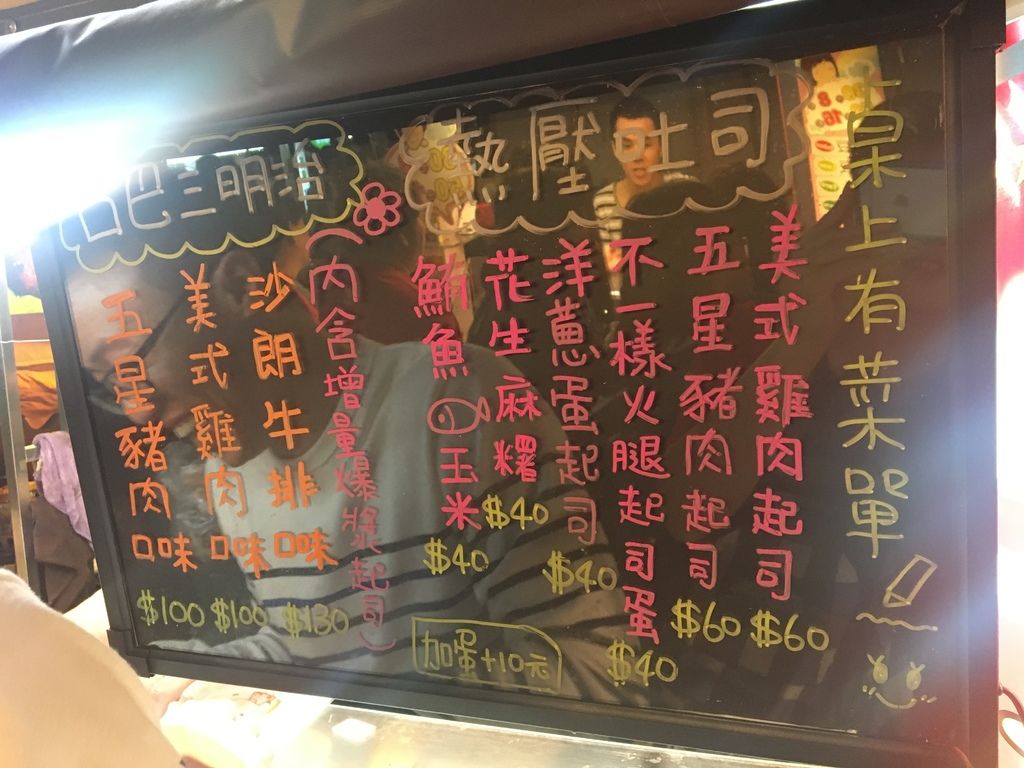 桌上有菜單
熱壓吐司
美式雞肉起司
$60
五星豬肉起司
$60
不一樣火腿起司蛋
$40
洋蔥蛋起司
$40
花生麻糬
$40
鮪魚玉米
$40
加蛋+10元
口巴三明治
(內含增量爆漿起司)
沙朗牛排口味
$130
美式雞肉口味
$100
五星豬肉口味
$100